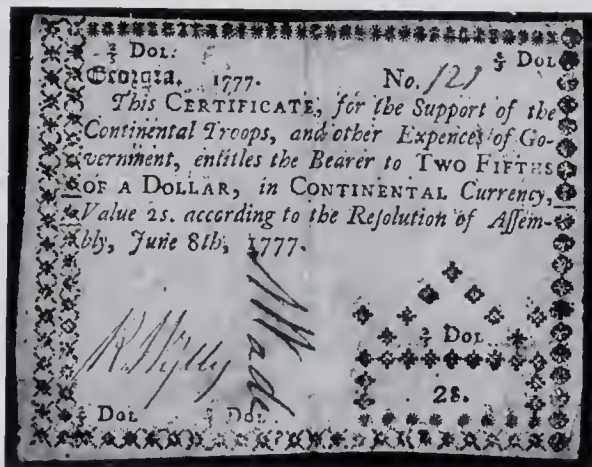 ⅖ Dol. ⅖ Dol
Georgia. 1777. No. 121
This CERTIFICATE, for the Support of the
Continental Troops, and other Expences of Go-
vernment, entitles the Bearer to TWO FIFTHS
OF A DOLLAR, in CONTINENTAL Currency,
Value 2s. according to the Reſolution of Aſſem-
bly, June 8th, 1777.
R. Wylly
Wade
⅖ Dol
2s.
⅖ Dol ⅖ Dol